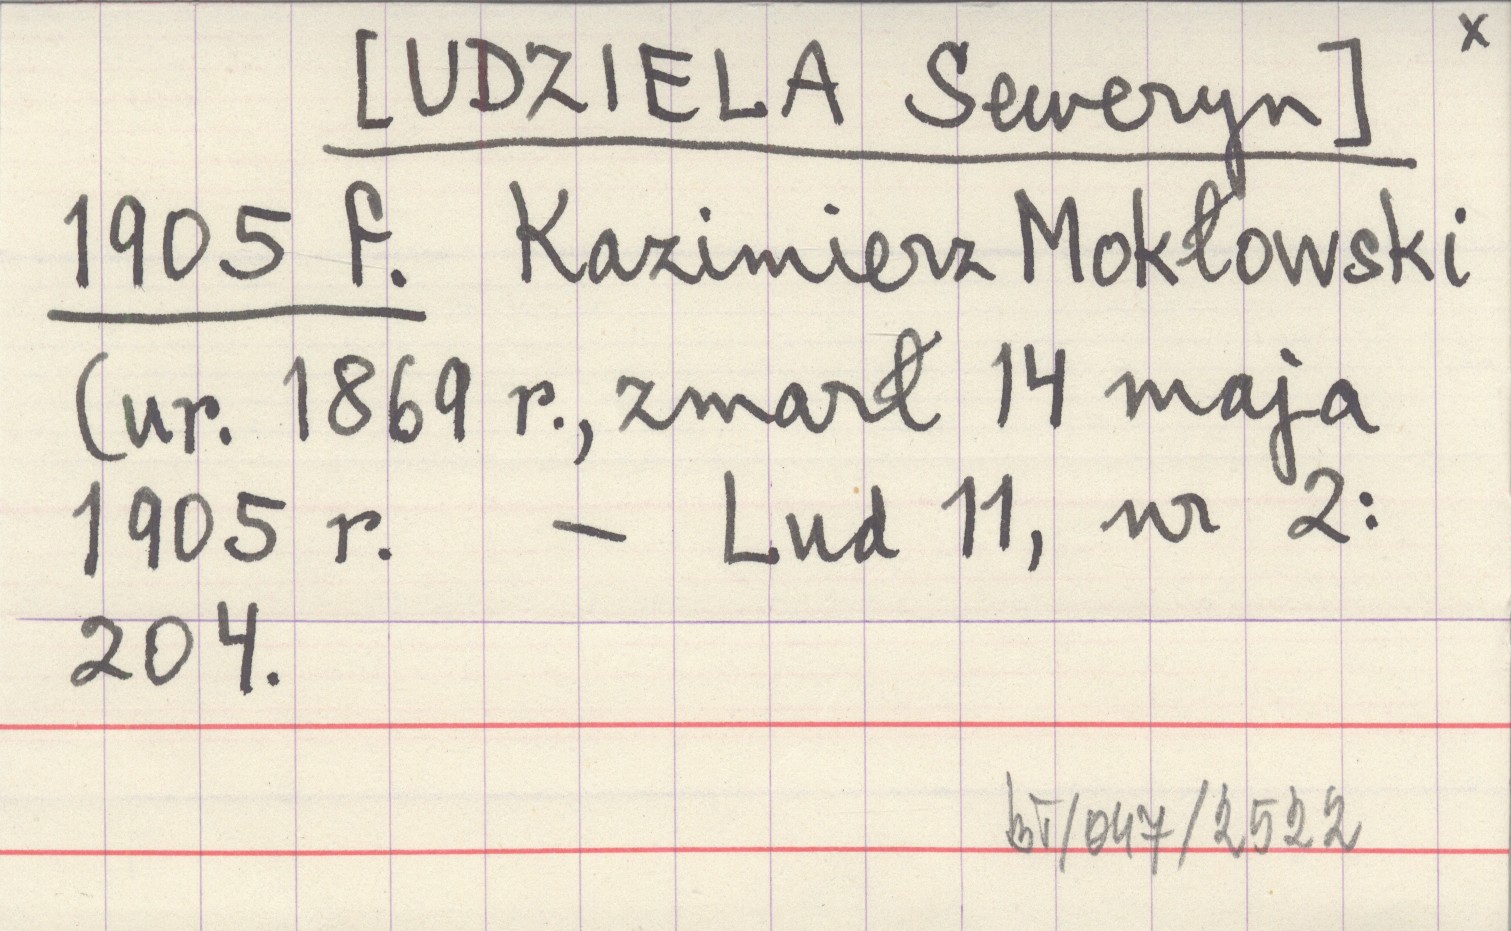 x
[UDZIELA Seweryn]
1905 f. Kazimierz Mokłowski
(ur. 1869 r., zmarł 14 maja
1905 r. — Lud 11, nr 2:
204.
/047/2522